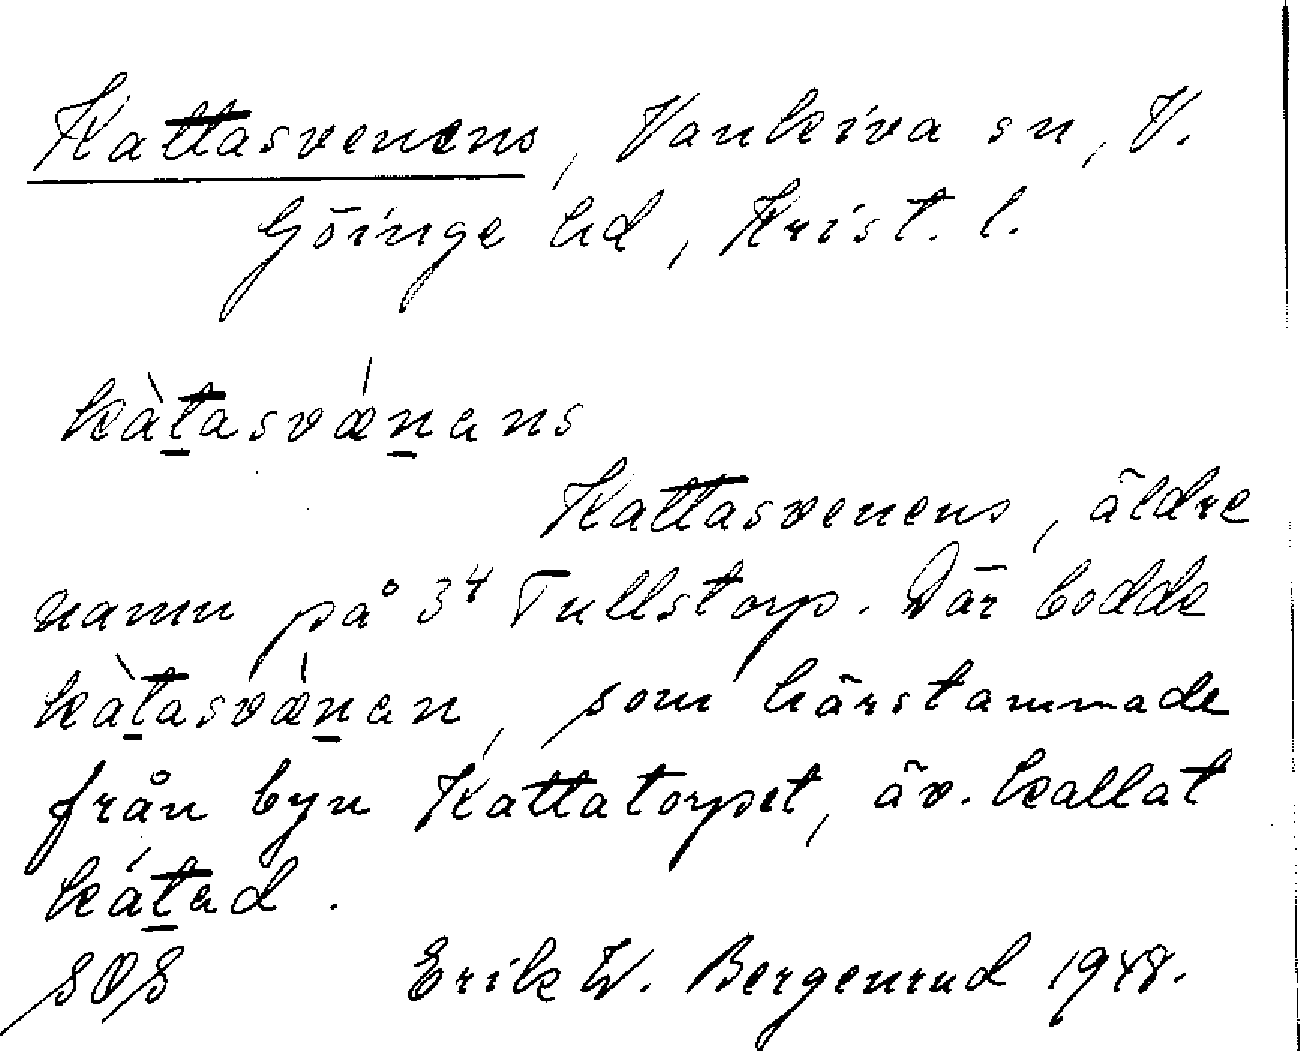 Kattasvenens, Vankiva sn, V.
Göinge hd, Krist. l.
kàt̲asvæ̍n̲ans
Kattasvenens, äldre
namn på 3⁴ Tullstorp. Där bodde
kàt̲asvæ̍n̲an, som härstammade
från byn Kattatorpet, äv. kallat
kát̲ad.
SOS Erik W. Bergenrud 1948.